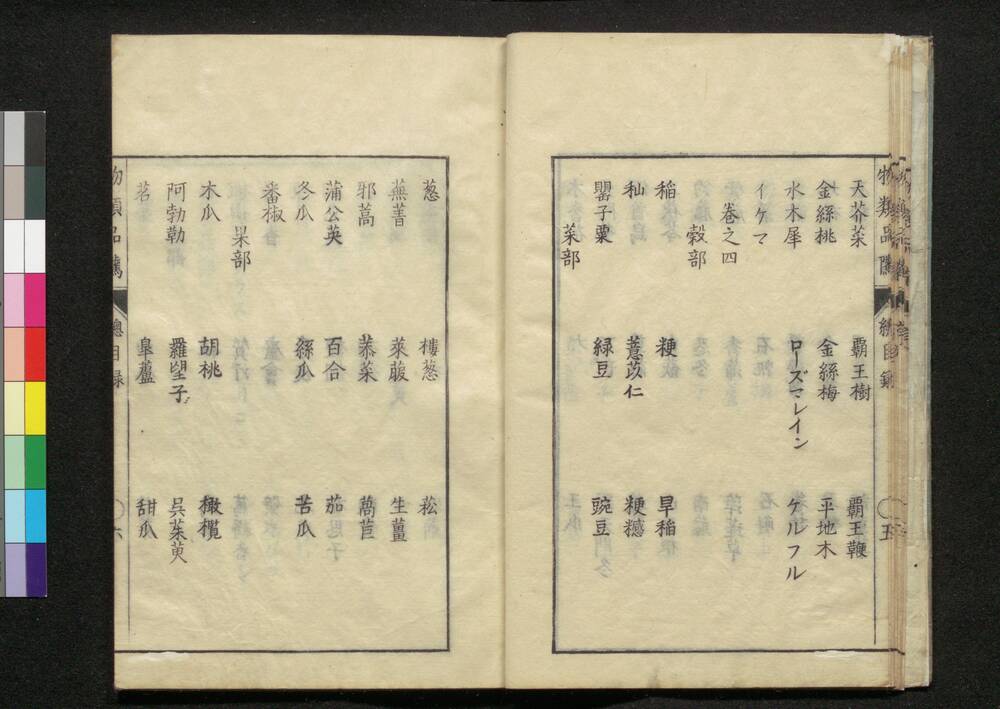 物類品隲 總目録 五
天芥菜 覇王樹 覇王鞭
金絲桃 金絲梅 平地木
水木犀 ローズマレイン ケルフル
イケマ
巻之四
穀部
稲 粳 早稲
秈 薏苡仁 粳穤
罌子粟 緑豆 豌豆
菜部
葱 樓葱 菘
蕪菁 萊菔 生薑
邪蒿 菾菜 萵苣
蒲公英 百合 茄
冬瓜 絲瓜 苦瓜
番椒
果部
木瓜 胡桃 橄欖
阿勃勒 羅望子 呉茱萸
茗 皐蘆 甜瓜
物類品隲 總目録 六